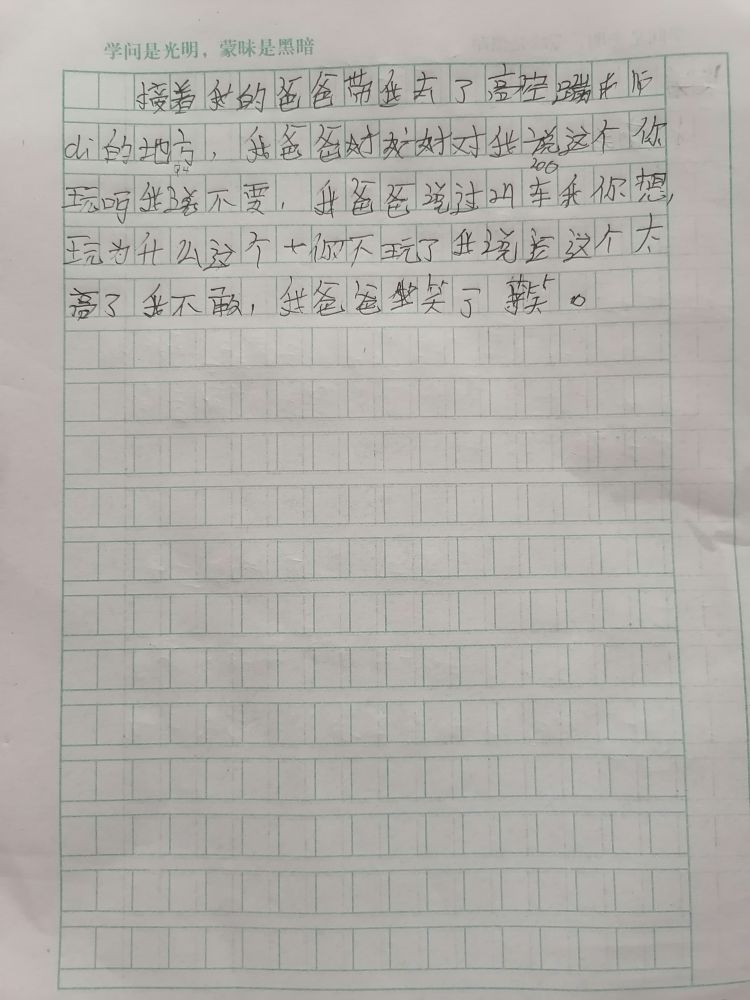 学问是光明，蒙昧是黑暗
接着我的爸爸带我去了高空蹦
di的地方，我爸爸对我说这个你
玩吗我说不要，我爸爸说过叫我你想，
玩为什么这个你不玩了我说这个太
高了我不敢，我爸爸笑了笑。